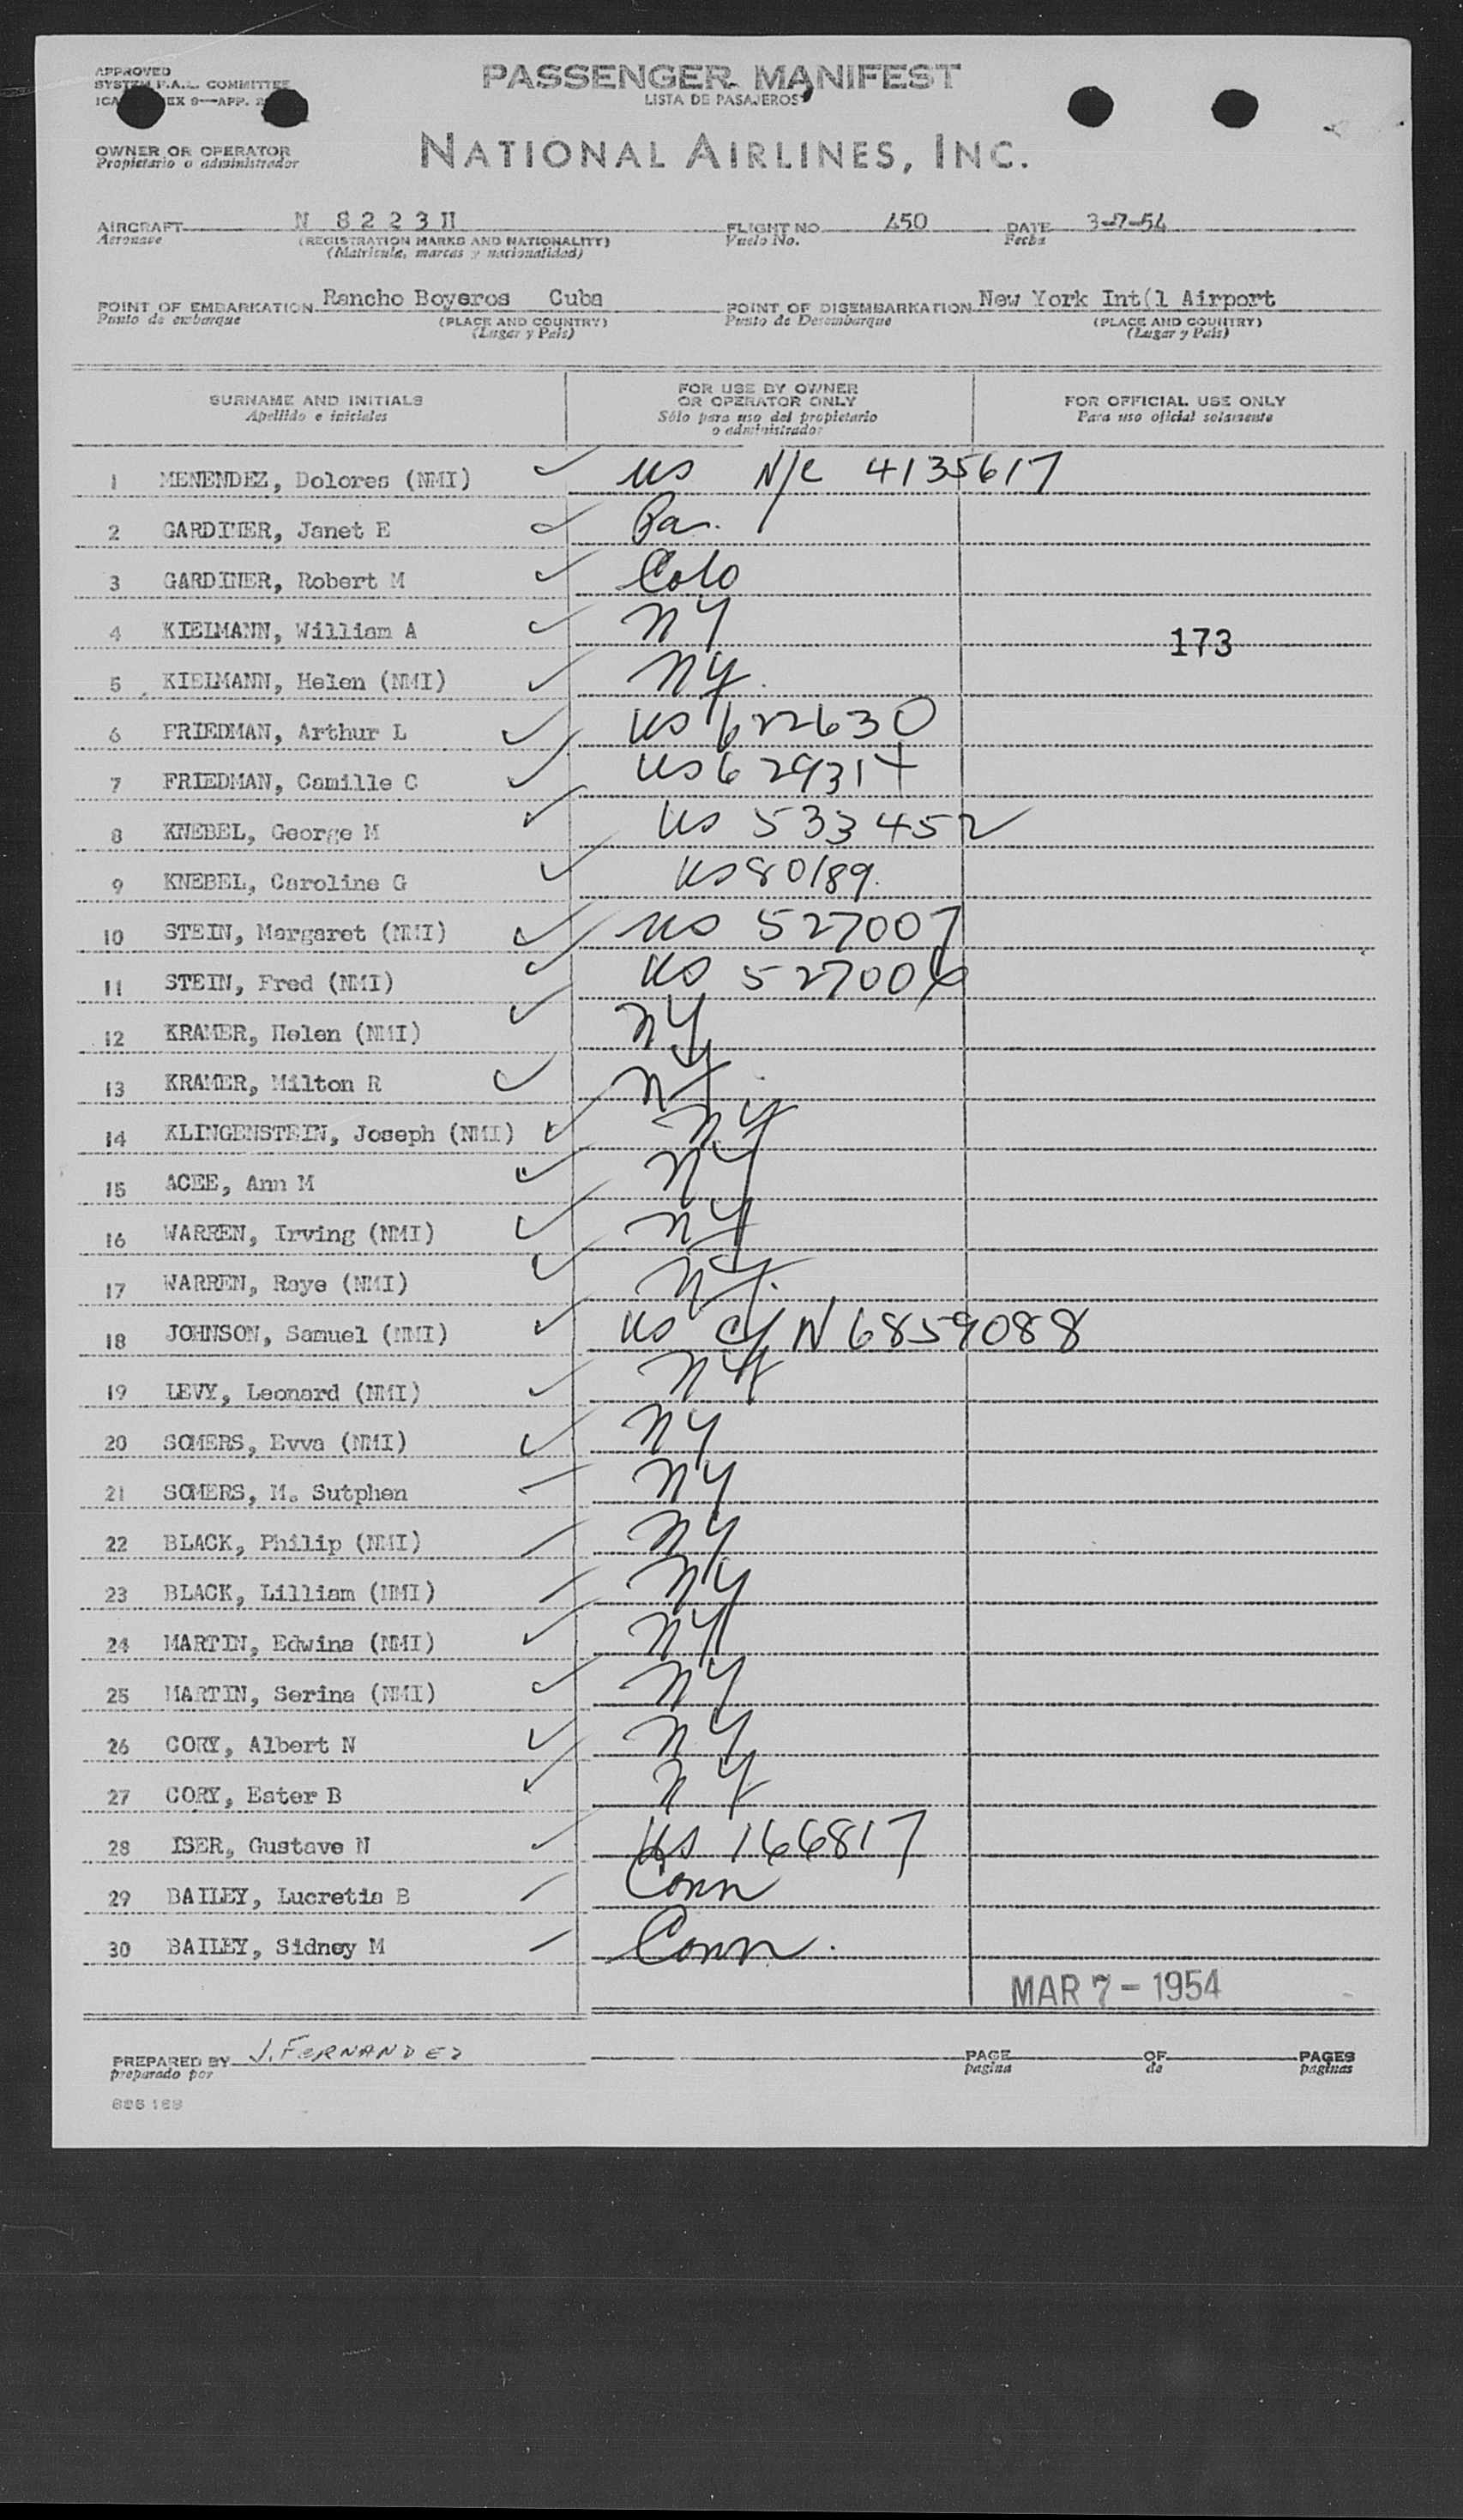 APPROVED
SYSTEM F.A.L. COMMITTEE
EX 9—APP.
PASSENGER MANIFEST
LISTA DE PASAJEROS
OWNER OR OPERATOR
Propietario o administrador
NATIONAL AIRLINES, INC.
AIRCRAFT N 8 2 2 3 H FLIGHT NO. 450 DATE 3-7-54
Aeronave (REGISTRATION MARKS AND NATIONALITY) Vuelo No. Fecha
(Matrícula, marcas y nacionalidad)
POINT OF EMBARKATION Rancho Boyeros Cuba POINT OF DISEMBARKATION New York Int(l Airport
Punto de embarque (PLACE AND COUNTRY) Punto de Desembarque (PLACE AND COUNTRY)
(Lugar y País) (Lugar y País)
SURNAME AND INITIALS
Apellido e iniciales
FOR USE BY OWNER
OR OPERATOR ONLY
Sólo para uso del propietario
o administrador
FOR OFFICIAL USE ONLY
Para uso oficial solamente
1 MENENDEZ, Dolores (NMI) US N/C 4135617
2 GARDINER, Janet E Pa.
3 GARDINER, Robert M Colo
4 KIEIMANN, William A NY 173
5 KIEIMANN, Helen (NMI) NY.
6 FRIEDMAN, Arthur L US 622630
7 FRIEDMAN, Camille C US 629314
8 KNEBEL, George M US 533452
9 KNEBEL, Caroline G US 80189.
10 STEIN, Margaret (NMI) US 527007
11 STEIN, Fred (NMI) US 527006
12 KRAMER, Helen (NMI) NY
13 KRAMER, Milton R NY.
14 KLINGENSTEIN, Joseph (NMI) NY
15 ACEE, Ann M NY
16 WARREN, Irving (NMI) NY
17 WARREN, Raye (NMI) NY.
18 JOHNSON, Samuel (NMI) US C/N 6859088
19 LEVY, Leonard (NMI) NY
20 SOMERS, Evva (NMI) NY
21 SOMERS, M. Sutphen NY
22 BLACK, Philip (NMI) NY
23 BLACK, Lilliam (NMI) NY
24 MARTIN, Edwina (NMI) NY
25 MARTIN, Serina (NMI) NY
26 CORY, Albert N NY
27 CORY, Ester B NY
28 ISER, Gustave N US 166817
29 BAILEY, Lucretia B Conn
30 BAILEY, Sidney M Conn.
MAR 7 - 1954
PREPARED BY J. FERNANDEZ PAGE OF PAGES
preparado por pagina de paginas